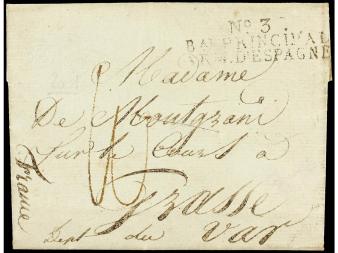 No 3.
BAU PRINCIVAL
ARM. D'ESPAGNE
Madame
De Montgrand
Sur le Cours à
Grasse
Dept du Var
France